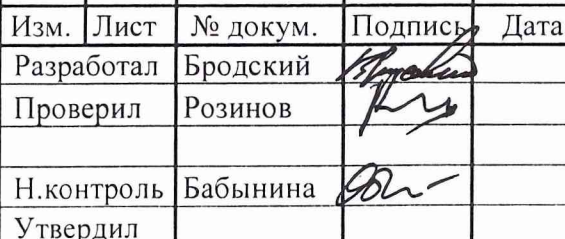 Изм. Лист № докум. Подпись Дата
Разработал Бродский
Проверил Розинов
Н.контроль Бабынина
Утвердил